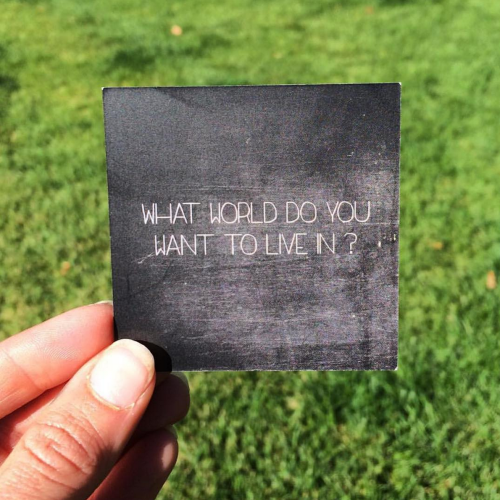 WHAT WORLD DO YOU
WANT TO LIVE IN ?